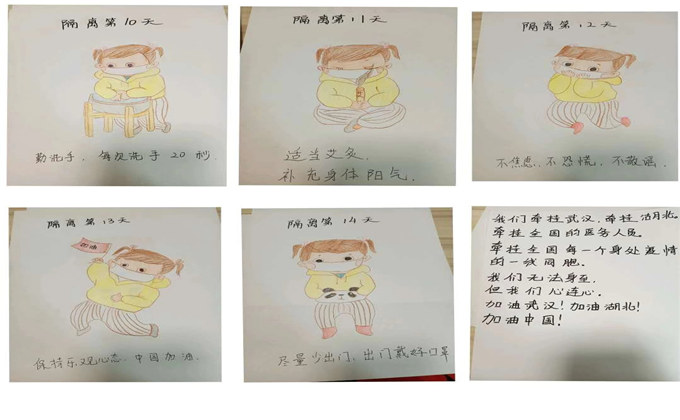 隔离第10天
勤洗手，每次洗手20秒
隔离第11天
适当艾灸，
补充身体阳气。
隔离第12天
不焦虑、不恐慌、不散谣
隔离第13天
加油
保持乐观心态，中国加油
隔离第14天
尽量少出门、出门戴好口罩
我们牵挂武汉，牵挂湖北。
牵挂全国的医务人员。
牵挂全国每一个身处疫情
的一线同胞。
我们无法身至，
但我们心连心。
加油武汉！加油湖北！
加油中国！